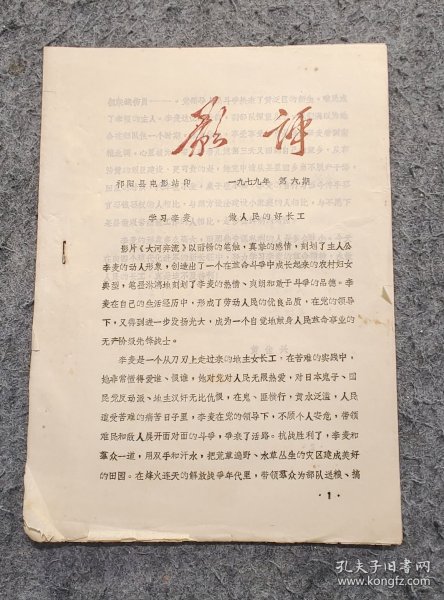 影评
祁阳县电影站印 一九七九年 第六期
学习李麦 做人民的好长工
影片《大河奔流》以丽畅的笔触，真挚的感情，刻划了主人公
李麦的动人形象，创造出了一个在革命斗争中成长起来的农村妇女
典型，笔墨淋漓地刻划了李麦的热情、爽朗和敢于斗争的品德。李
麦在自己的生活经历中，形成了劳动人民的优良品质，在党的领导
下，又得到进一步发扬光大，成为一个自觉地献身人民革命事业的
无产阶级光锋战士。
李麦是一个从刀刃上走过来的地主女长工，在苦难的实践中，
她非常懂得爱谁、恨谁，她对党对人民无限热爱，对日本鬼子、国
民党反动派、地主汉奸无比仇恨，在鬼、匪横行，黄水泛滥，人民
遭受苦难的痛苦日子里，李麦在党的领导下，不顾个人安危，带领
难民和敌人展开面对面的斗争，争来了活路。抗战胜利了，李麦和
群众一道，用双手和汗水，把荒草遍野、水草丛生的灾区建成美好
的田园。在烽火连天的解放战争年代里，带领群众为部队送粮、搞
·1·
孔夫子旧书网
www.kongfz.com